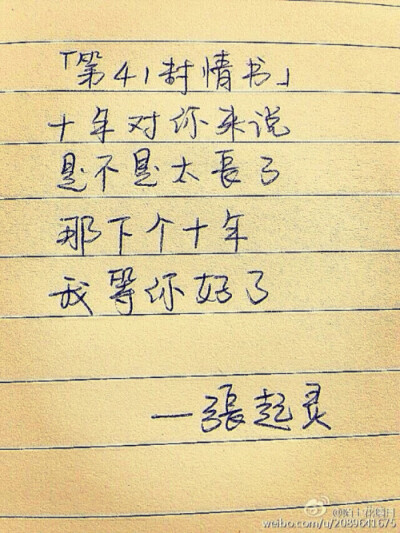 「第41封情书」
十年对你来说
是不是太長了
那下个十年
我等你好了
—張起灵
weibo.com/u/2089611675